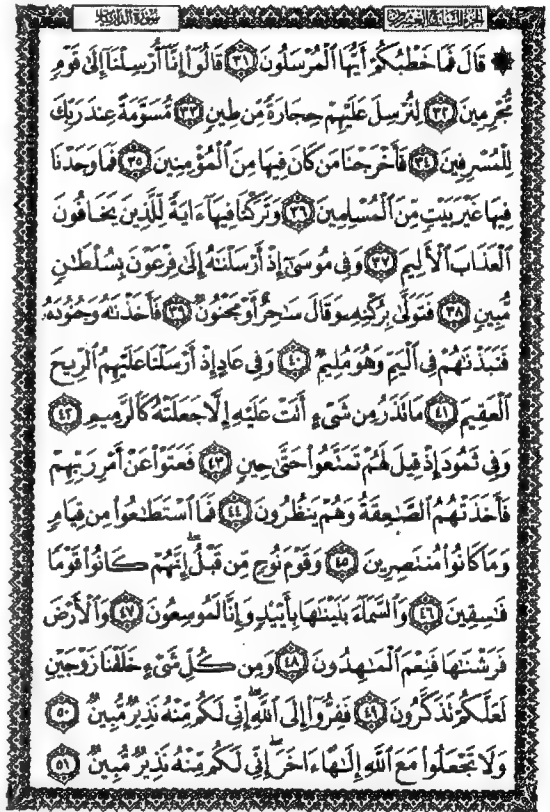 الجزء السابع والعشرون سورة الذاريات
۞ قَالَ فَمَا خَطْبُكُمْ أَيُّهَا ٱلْمُرْسَلُونَ ٣١ قَالُوٓا۟ إِنَّآ أُرْسِلْنَآ إِلَىٰ قَوْمٍ
مُّجْرِمِينَ ٣٢ لِنُرْسِلَ عَلَيْهِمْ حِجَارَةً مِّن طِينٍ ٣٣ مُّسَوَّمَةً عِندَ رَبِّكَ
لِلْمُسْرِفِينَ ٣٤ فَأَخْرَجْنَا مَن كَانَ فِيهَا مِنَ ٱلْمُؤْمِنِينَ ٣٥ فَمَا وَجَدْنَا
فِيهَا غَيْرَ بَيْتٍ مِّنَ ٱلْمُسْلِمِينَ ٣٦ وَتَرَكْنَا فِيهَآ ءَايَةً لِّلَّذِينَ يَخَافُونَ
ٱلْعَذَابَ ٱلْأَلِيمَ ٣٧ وَفِى مُوسَىٰٓ إِذْ أَرْسَلْنَٰهُ إِلَىٰ فِرْعَوْنَ بِسُلْطَٰنٍ
مُّبِينٍ ٣٨ فَتَوَلَّىٰ بِرُكْنِهِۦ وَقَالَ سَٰحِرٌ أَوْ مَجْنُونٌ ٣٩ فَأَخَذْنَٰهُ وَجُنُودَهُۥ
فَنَبَذْنَٰهُمْ فِى ٱلْيَمِّ وَهُوَ مُلِيمٌ ٤٠ وَفِى عَادٍ إِذْ أَرْسَلْنَا عَلَيْهِمُ ٱلرِّيحَ
ٱلْعَقِيمَ ٤١ مَا تَذَرُ مِن شَىْءٍ أَتَتْ عَلَيْهِ إِلَّا جَعَلَتْهُ كَٱلرَّمِيمِ ٤٢
وَفِى ثَمُودَ إِذْ قِيلَ لَهُمْ تَمَتَّعُوا۟ حَتَّىٰ حِينٍ ٤٣ فَعَتَوْا۟ عَنْ أَمْرِ رَبِّهِمْ
فَأَخَذَتْهُمُ ٱلصَّٰعِقَةُ وَهُمْ يَنظُرُونَ ٤٤ فَمَا ٱسْتَطَٰعُوا۟ مِن قِيَامٍ
وَمَا كَانُوا۟ مُنتَصِرِينَ ٤٥ وَقَوْمَ نُوحٍ مِّن قَبْلُ ۖ إِنَّهُمْ كَانُوا۟ قَوْمًا
فَٰسِقِينَ ٤٦ وَٱلسَّمَآءَ بَنَيْنَٰهَا بِأَيْي۟دٍ وَإِنَّا لَمُوسِعُونَ ٤٧ وَٱلْأَرْضَ
فَرَشْنَٰهَا فَنِعْمَ ٱلْمَٰهِدُونَ ٤٨ وَمِن كُلِّ شَىْءٍ خَلَقْنَا زَوْجَيْنِ
لَعَلَّكُمْ تَذَكَّرُونَ ٤٩ فَفِرُّوٓا۟ إِلَى ٱللَّهِ ۖ إِنِّى لَكُم مِّنْهُ نَذِيرٌ مُّبِينٌ ٥٠
وَلَا تَجْعَلُوا۟ مَعَ ٱللَّهِ إِلَٰهًا ءَاخَرَ ۖ إِنِّى لَكُم مِّنْهُ نَذِيرٌ مُّبِينٌ ٥١